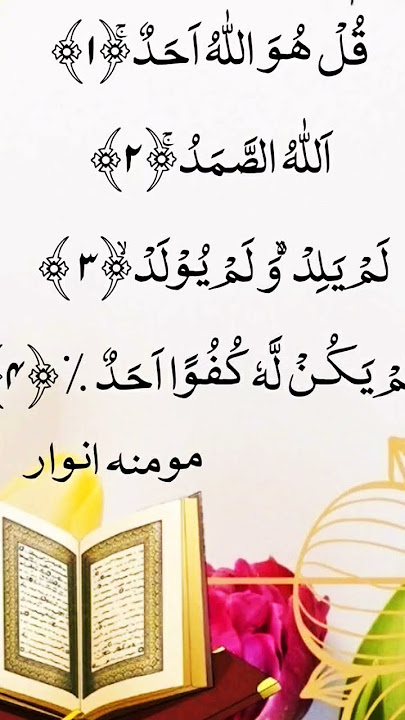 قُلْ هُوَ اللّٰهُ اَحَدٌۚ﴿۱﴾
اَللّٰهُ الصَّمَدُۚ﴿۲﴾
لَمْ یَلِدْ ۙ۬ وَ لَمْ یُوْلَدْۙ﴿۳﴾
یَكُنْ لَّهٗ كُفُوًا اَحَدٌ٪﴿۴﴾
مومنہ انوار